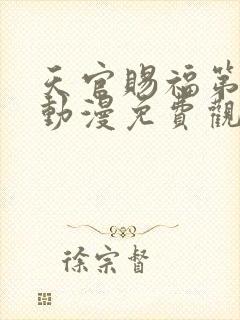 天官賜福第
動漫免費觀
徐宗督